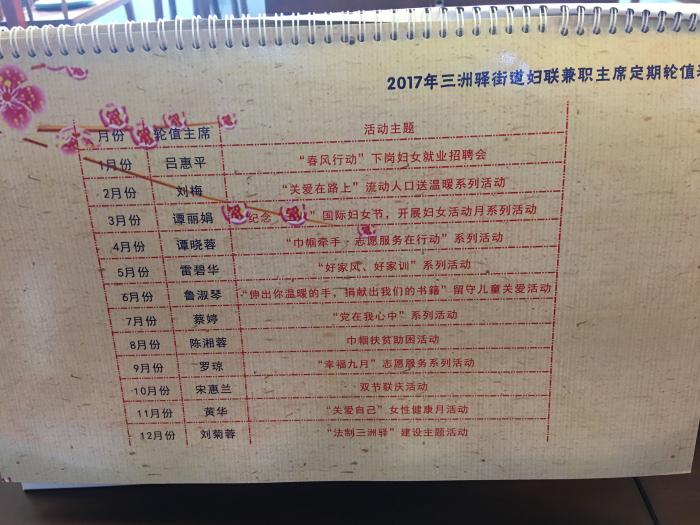 2017年三洲驿街道妇联兼职主席定期轮值
月份 轮值主席 活动主题
1月份 吕惠平 “春风行动”下岗妇女就业招聘会
2月份 刘梅 “关爱在路上”流动人口送温暖系列活动
3月份 谭丽娟 纪念 ”国际妇女节，开展妇女活动月系列活动
4月份 谭晓蓉 “巾帼牵手·志愿服务在行动”系列活动
5月份 雷碧华 “好家风、好家训”系列活动
6月份 鲁淑琴 “伸出你温暖的手，捐献出我们的书籍”留守儿童关爱活动
7月份 蔡婷 “党在我心中”系列活动
8月份 陈湘蓉 巾帼扶贫助困活动
9月份 罗琼 “幸福九月”志愿服务系列活动
10月份 宋惠兰 双节联庆活动
11月份 黄华 “关爱自己”女性健康月活动
12月份 刘菊蓉 “法制三洲驿”建设主题活动